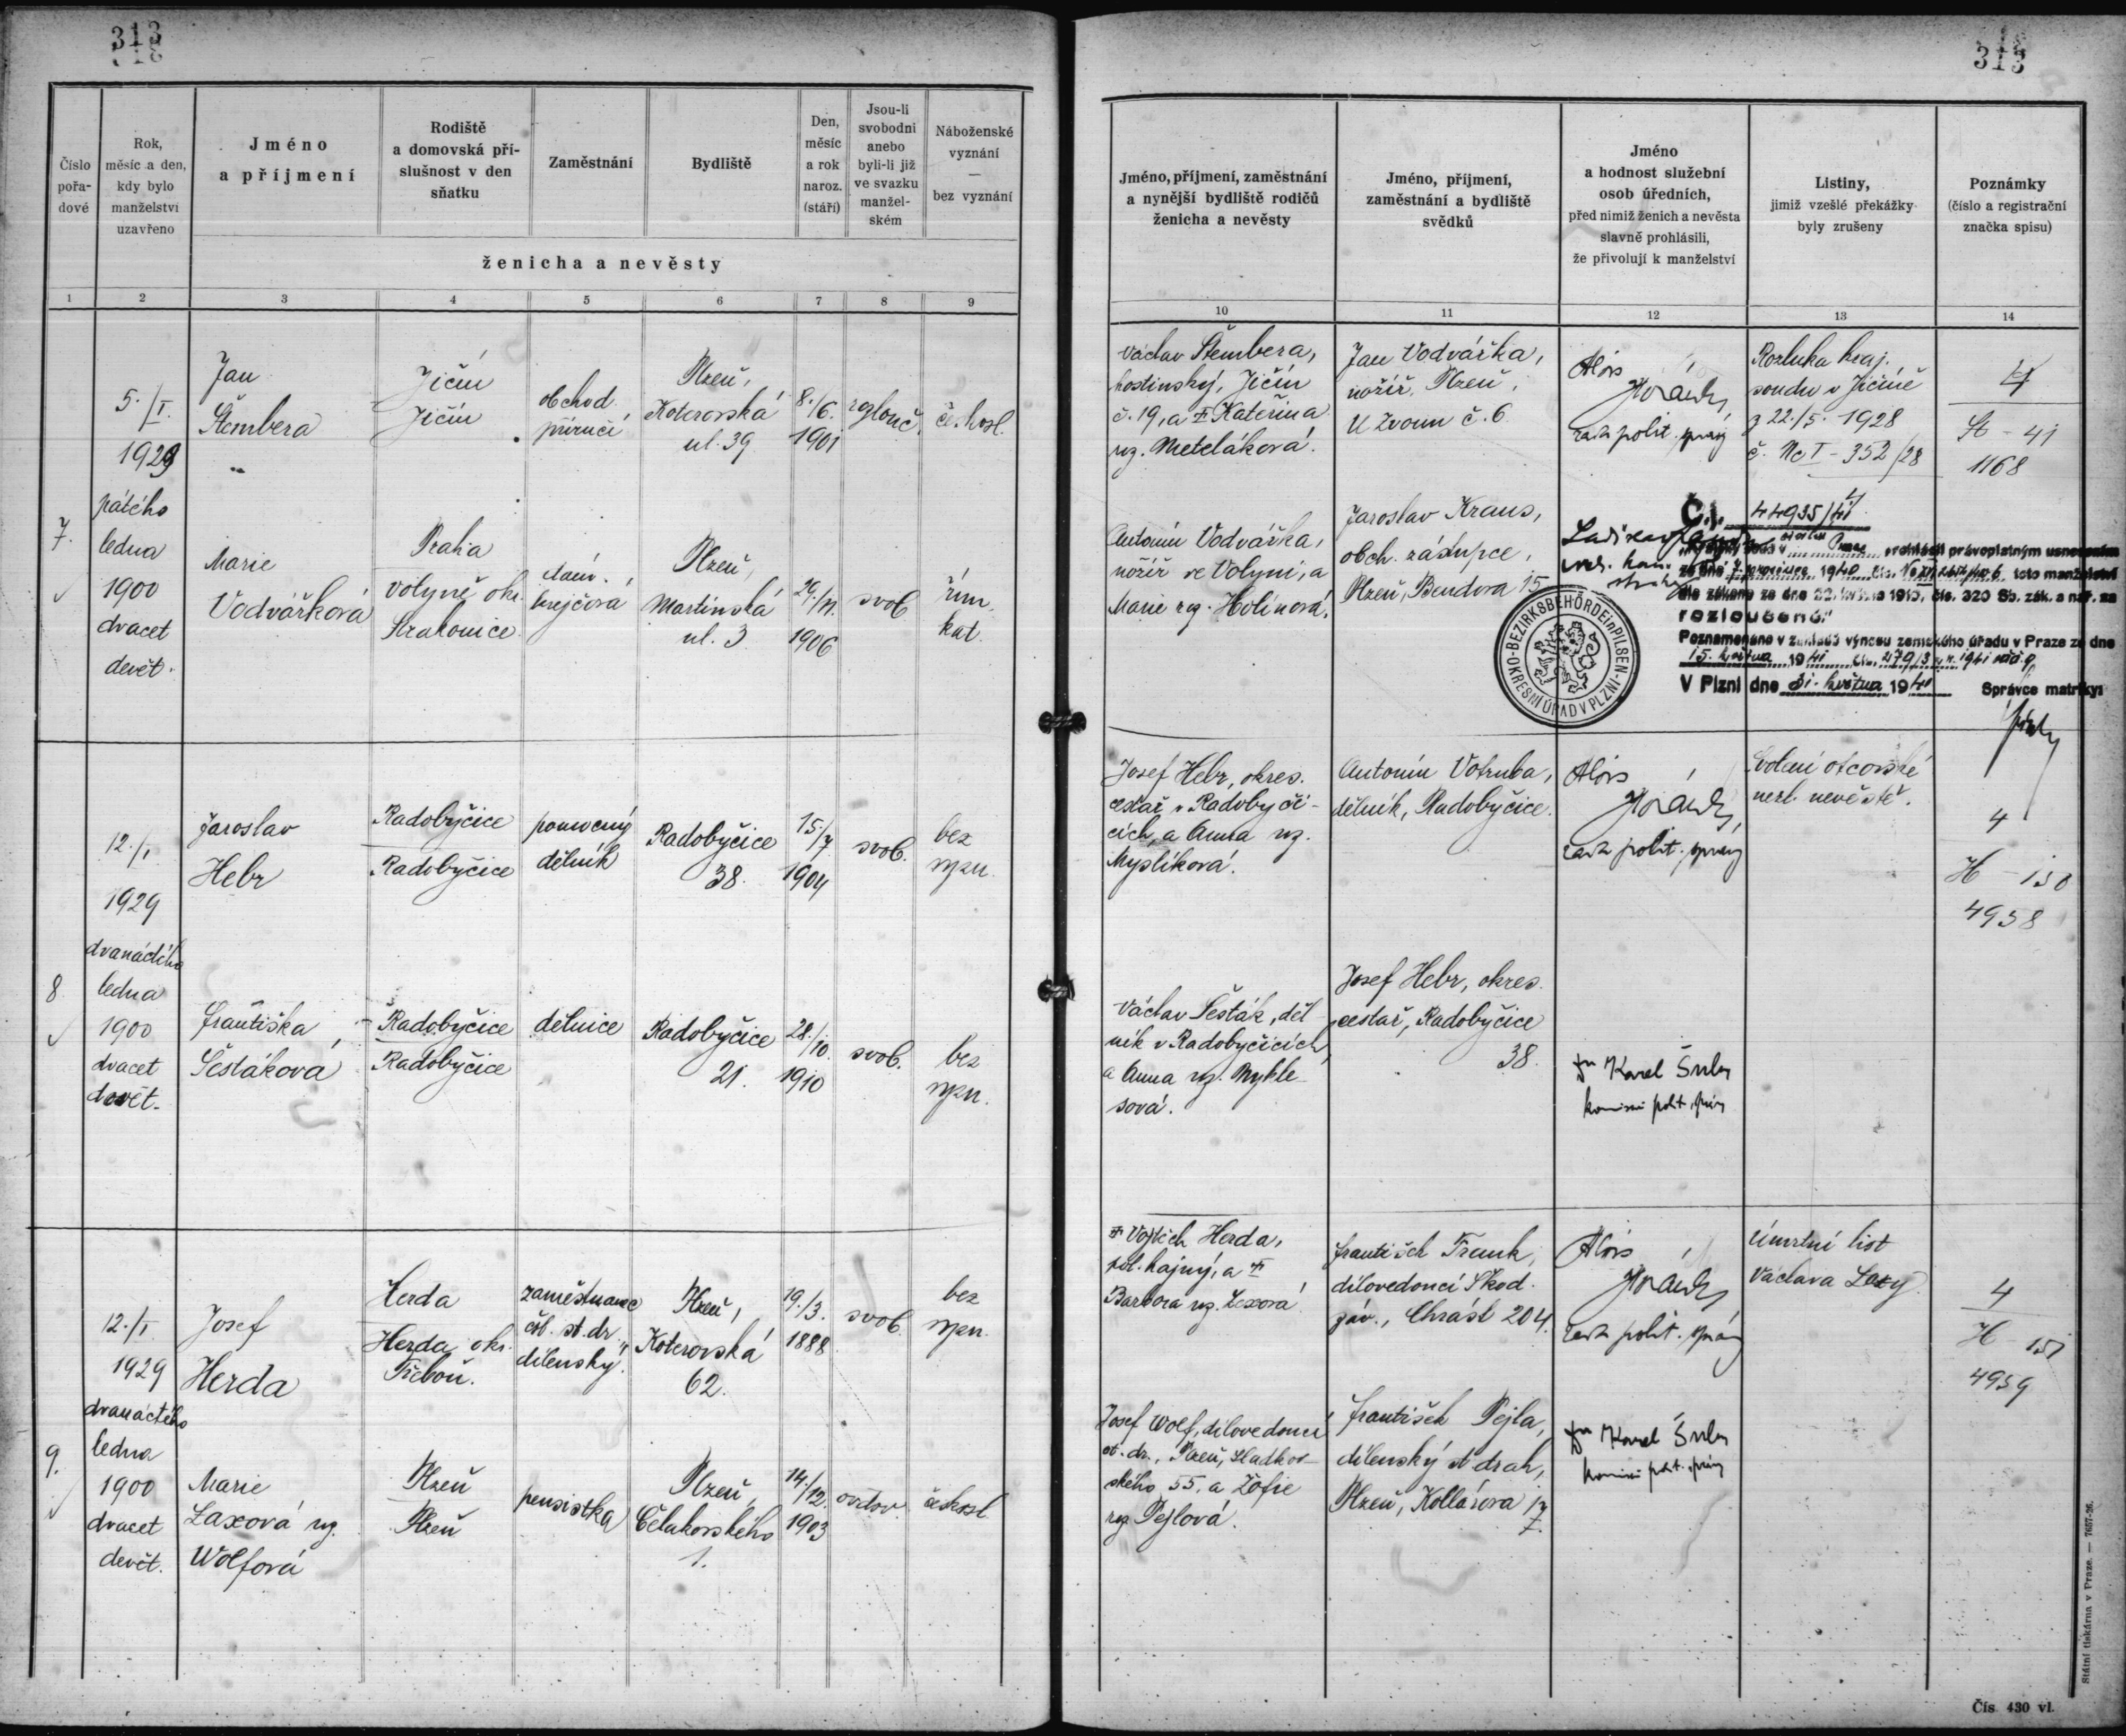 313
313
Číslo
pořa-
dové
Rok,
měsíc a den,
kdy bylo
manželství
uzavřeno
Jméno
a příjmení
Rodiště
a domovská pří-
slušnost v den
sňatku
Zaměstnání
Bydliště
Den,
měsíc
a rok
naroz.
(stáří)
Jsou-li
svobodni
anebo
byli-li již
ve svazku
manžel-
ském
Náboženské
vyznání
—
bez vyznání
ženicha a nevěsty
Jméno, příjmení, zaměstnání
a nynější bydliště rodičů
ženicha a nevěsty
Jméno, příjmení,
zaměstnání a bydliště
svědků
Jméno
a hodnost služební
osob úředních,
před nimiž ženich a nevěsta
slavně prohlásili,
že přivolují k manželství
Listiny,
jimiž vzešlé překážky
byly zrušeny
Poznámky
(číslo a registrační
značka spisu)
1 2 3 4 5 6 7 8 9
10 11 12 13 14
7.
5./I.
1929
pátého
ledna
1900
dvacet
devět.
Jan
Štembera
Jičín
Jičín
obchod.
příručí
Plzeň,
Koterovská
ul. 39
8./6.
1901
rozlouč.
českosl.
Václav Štembera,
hostinský, Jičín
č. 19, a Kateřina
roz. Meteláková.
Jan Vodvářka,
nožíř, Plzeň,
U Zvonu č. 6
Alois
rada polit. správy
Rozluka kraj.
soudu v Jičíně
z 22./5. 1928
č. Nc I - 352/28
4
St - 41
1168
Marie
Vodvářková
Praha
Volyně okr.
Strakonice
dám.
krejčová
Plzeň,
Martinská
ul. 3
1906
svob
řím.
kat.
Antonín Vodvářka,
nožíř ve Volyni, a
Marie roz. Holinová.
Jaroslav Kraus,
obch. zástupce,
Plzeň, Bendova 15
Ladislav
Č.j. 44935/41
prohlásil právoplatným usnesením
ze dne 7. prosince 1940 toto manželství
dle zákona ze dne 22. května 1919, čís. 320 Sb. zák. a nař. za
rozloučené."
Poznamenáno v základě výnosu zemského úřadu v Praze ze dne
15. května 1941
V Plzni dne 31. května 1941 Správce matriky:
BEZIRKSBEHÖRDE in PILSEN
OKRESNÍ ÚŘAD V PLZNI
8
12./I
1929
dvanáctého
ledna
1900
dvacet
devět.
Jaroslav
Hebr
Radobyčice
Radobyčice
pomocný
dělník
Radobyčice
38.
15./7
1904
svob.
bez
vyzn.
Josef Hebr, okres.
cestář v Radobyči-
cích, a Anna roz.
Myslíková.
Antonín Votruba,
dělník, Radobyčice.
Alois
rada polit. správy
Svolení otcovské
nezl. nevěstě.
4
H - 150
4958
Františka
Šestáková
Radobyčice
Radobyčice
dělnice
Radobyčice
21.
28./10.
1910
svob.
bez
vyzn.
Václav Šesták, děl-
ník v Radobyčicích,
a Anna roz. Mykle-
sová.
Josef Hebr, okres.
cestář, Radobyčice
38.
Karel
komisař polit. správy
9.
12./I
1929
dvanáctého
ledna
1900
dvacet
devět.
Josef
Herda
Herda
Herda okr.
Třeboň.
zaměstnanec
čsl. st. dr.
dílenský.
Plzeň,
Koterovská
62.
19./3.
1888
svob.
bez
vyzn.
Vojtěch Herda,
pol. hajný, a
Barbora roz. Lexová.
František Frank,
dílovedoucí Škod.
záv., Chrást 204.
Alois
rada polit. správy
Úmrtní list
Václava Laxy
4
H 151
4959
Marie
Laxová roz.
Wolfová
Plzeň
Plzeň
pensistka
Plzeň,
Čelakovského
1.
14./12.
1903
ovdov.
českosl
Josef Wolf, dílovedoucí
st. dr., Plzeň, Sladkov-
ského 55, a Žofie
roz. Pejlová.
František Pejla,
dílenský st drah,
Plzeň, Kollárova 17.
Karel
komisař polit. správy
Státní tiskárna v Praze. — 7657-26.
Čís. 430 vl.